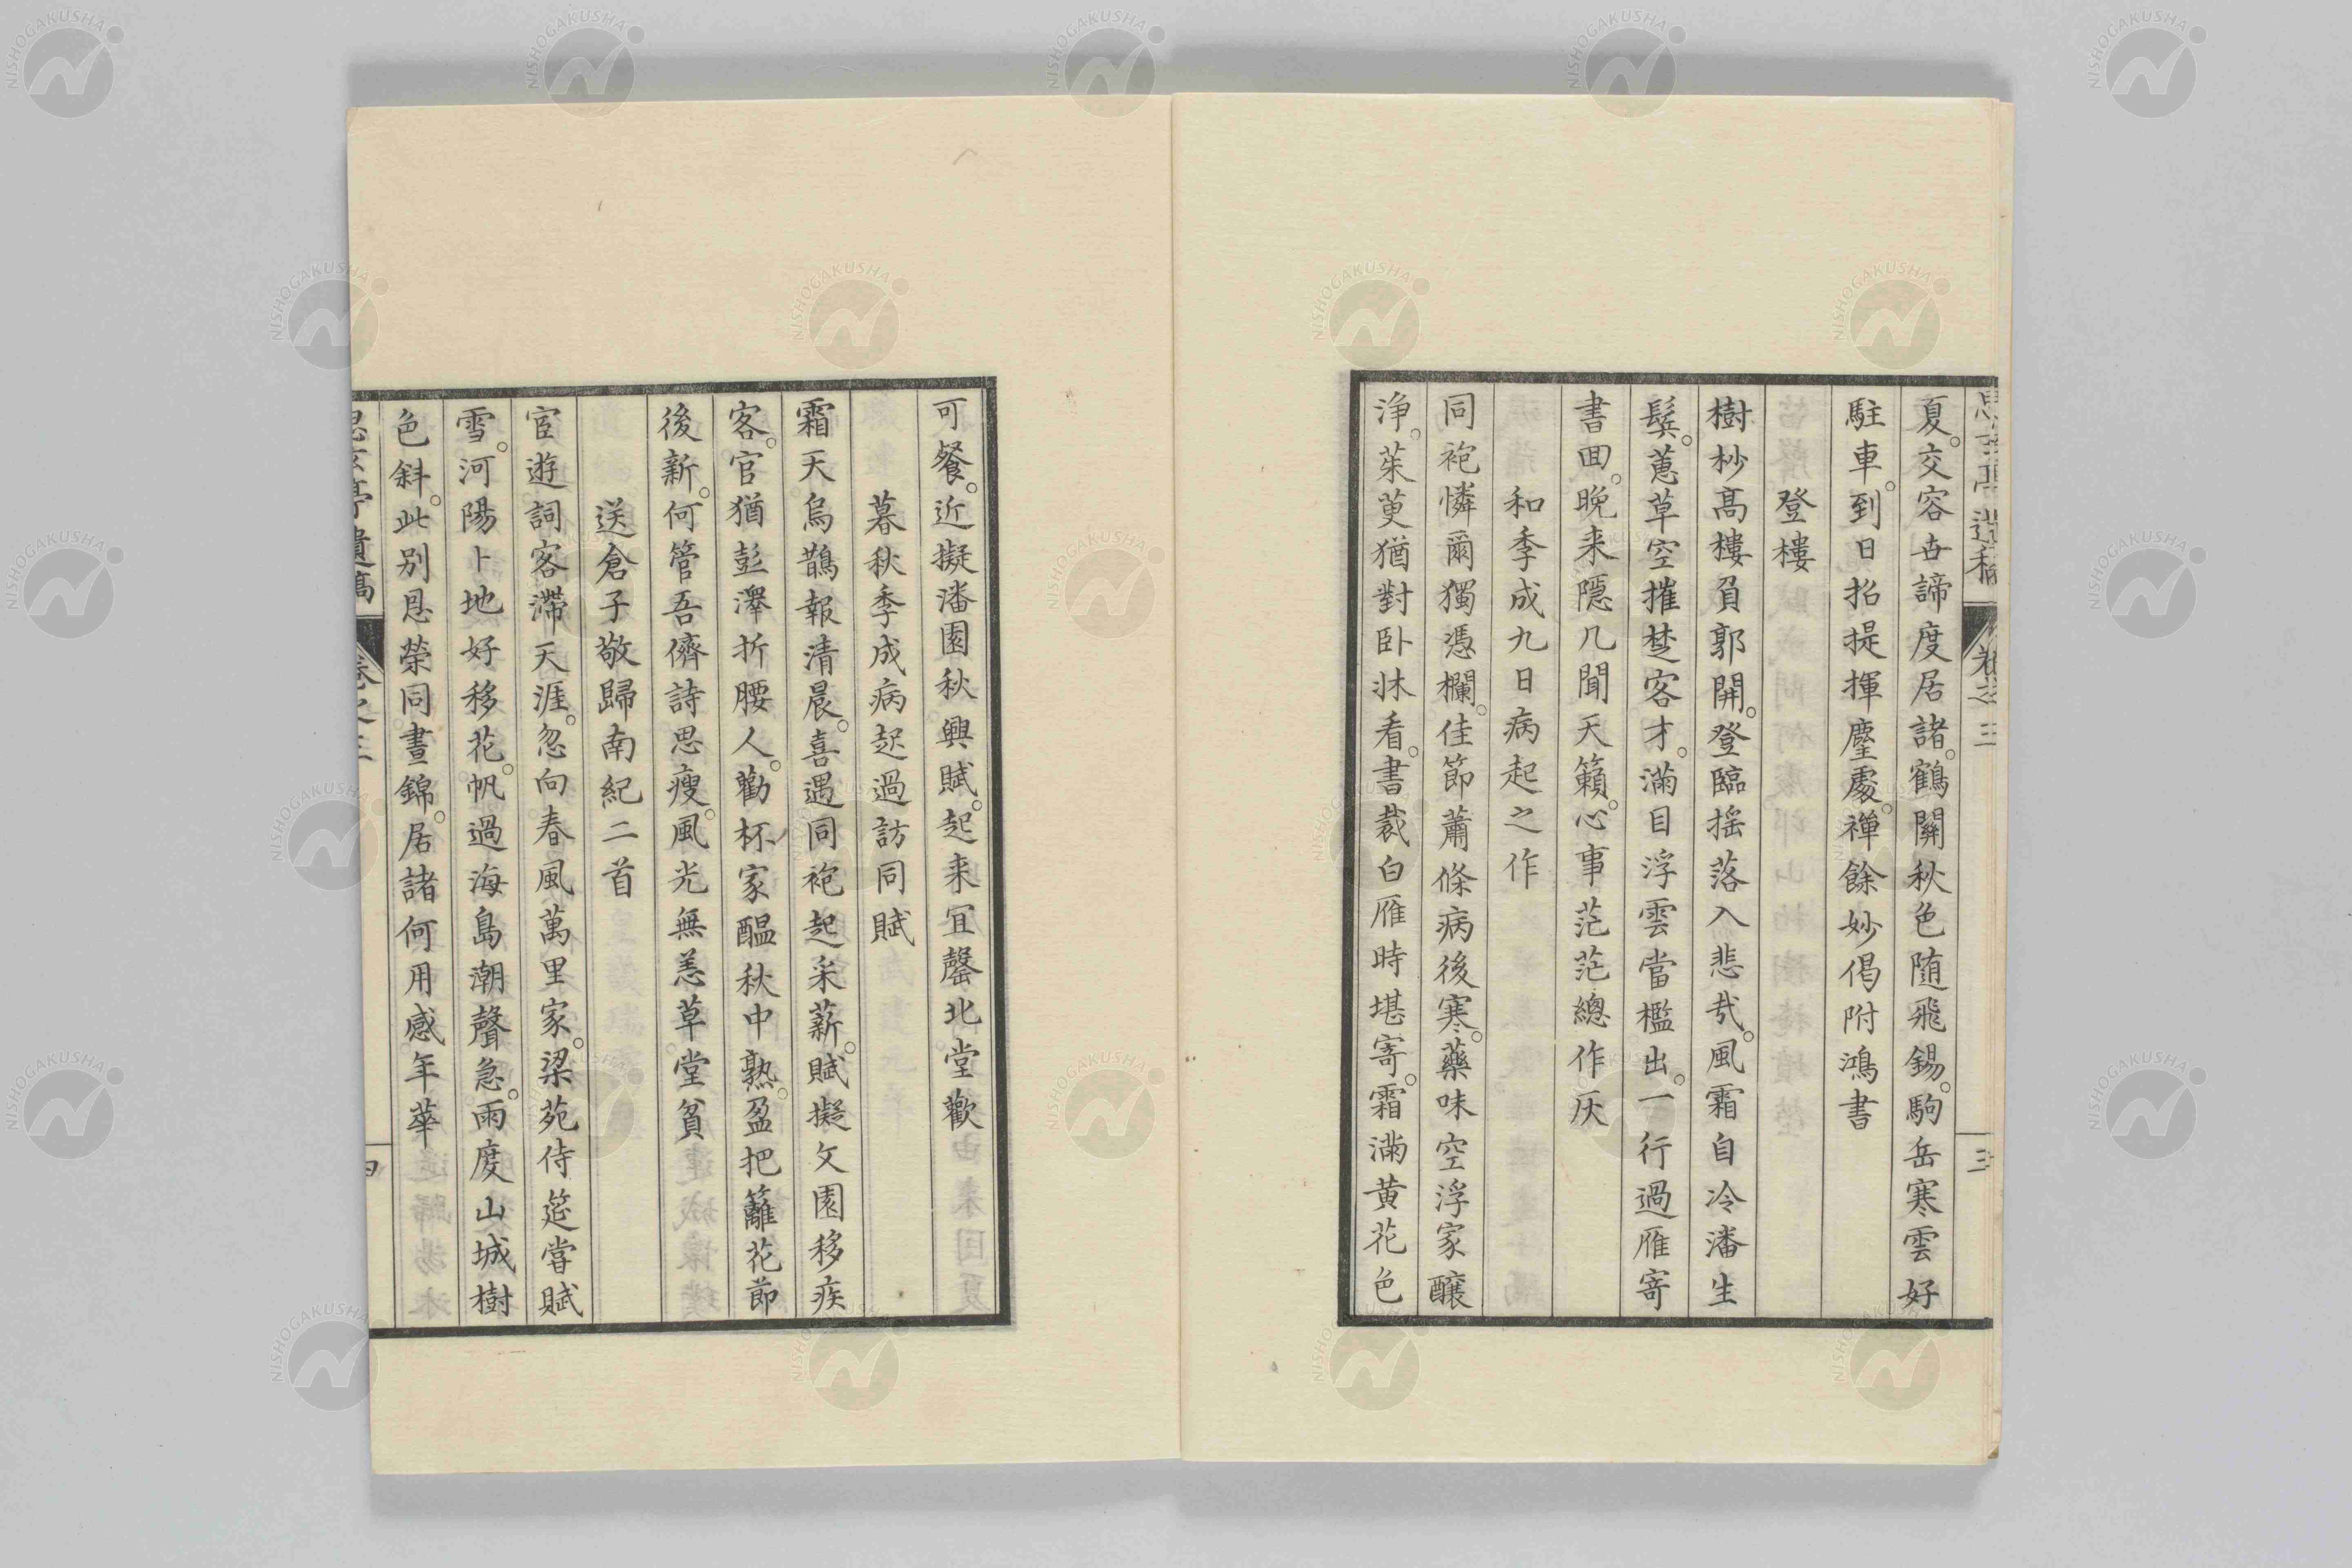 思玄亭遺稿 卷之三 三
夏。交容古諦度居諸。鶴關秋色随飛錫。駒岳寒雲好
駐車。到日招提揮麈處。禪餘妙偈附鴻書
登樓
樹杪髙樓負郭開。登臨揺落入悲哉。風霜自冷潘生
鬂。蕙草空摧楚客才。滿目浮雲當檻出。一行過雁寄
書回。晚来隱几聞天籟。心事茫茫總作灰
和季成九日病起之作
同袍憐爾獨憑欄。佳節蕭條病後寒。藥味空浮家釀
浄。茱萸猶對卧牀看。書裁白雁時堪寄。霜滿黄花色
可餐。近擬潘園秋興賦。起来宜罄北堂歡
暮秋季成病起過訪同賦
霜天烏鵲報清晨。喜遇同袍起采薪。賦擬文園移疾
客。官猶彭澤折腰人。勸杯家醞秋中熟。盈把籬花節
後新。何管吾儕詩思瘦。風光無恙草堂貧
送倉子敬歸南紀二首
宦遊詞客滯天涯。忽向春風萬里家。梁苑侍筵嘗賦
雪。河陽卜地好移花。帆過海島潮聲急。雨度山城樹
色斜。此别恩榮同晝錦。居諸何用感年華
思玄亭遺稿 卷之三 四
NISHOGAKUSHA